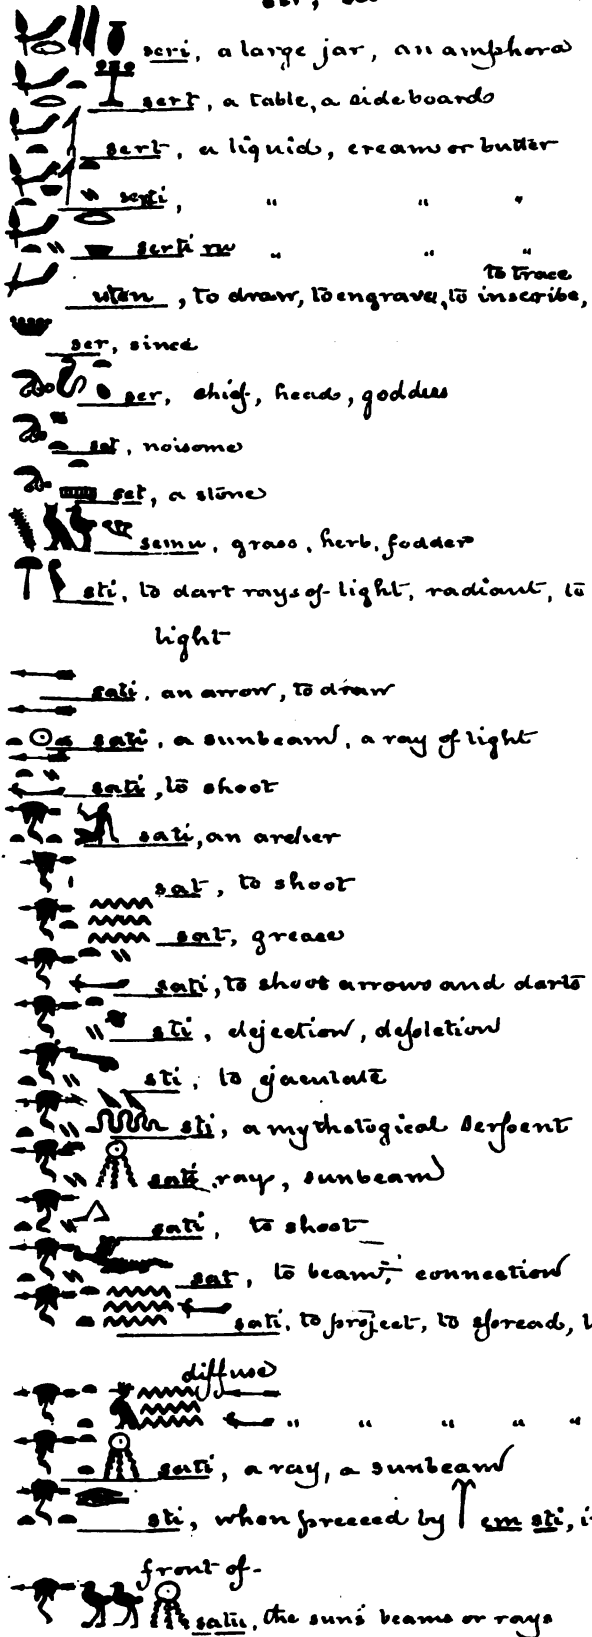 seri, a large jar, an amphora
sert, a table, a sideboard
sert, a liquid, cream or butter
serti, " " "
serti ru " " "
to trace
uten, to draw, to engrave, to inscribe,
ser, since
ser, chief, head, goddess
set, noisome
set, a stone
semu, grass, herb, fodder
sti, to dart rays of light, radiant, to
light
sati, an arrow, to draw
sati, a sunbeam, a ray of light
sati, to shoot
sati, an archer
sat, to shoot
sat, grease
sati, to shoot arrows and darts
sti, dejection, depletion
sti, to ejaculate
sti, a mythological serpent
sati ray, sunbeam
sati, to shoot
sat, to beam, connection
sati, to project, to spread,
diffuse
" " " " "
sati, a ray, a sunbeam
sti, when preceed by em sti,
front of
satu, the sun's beams or rays